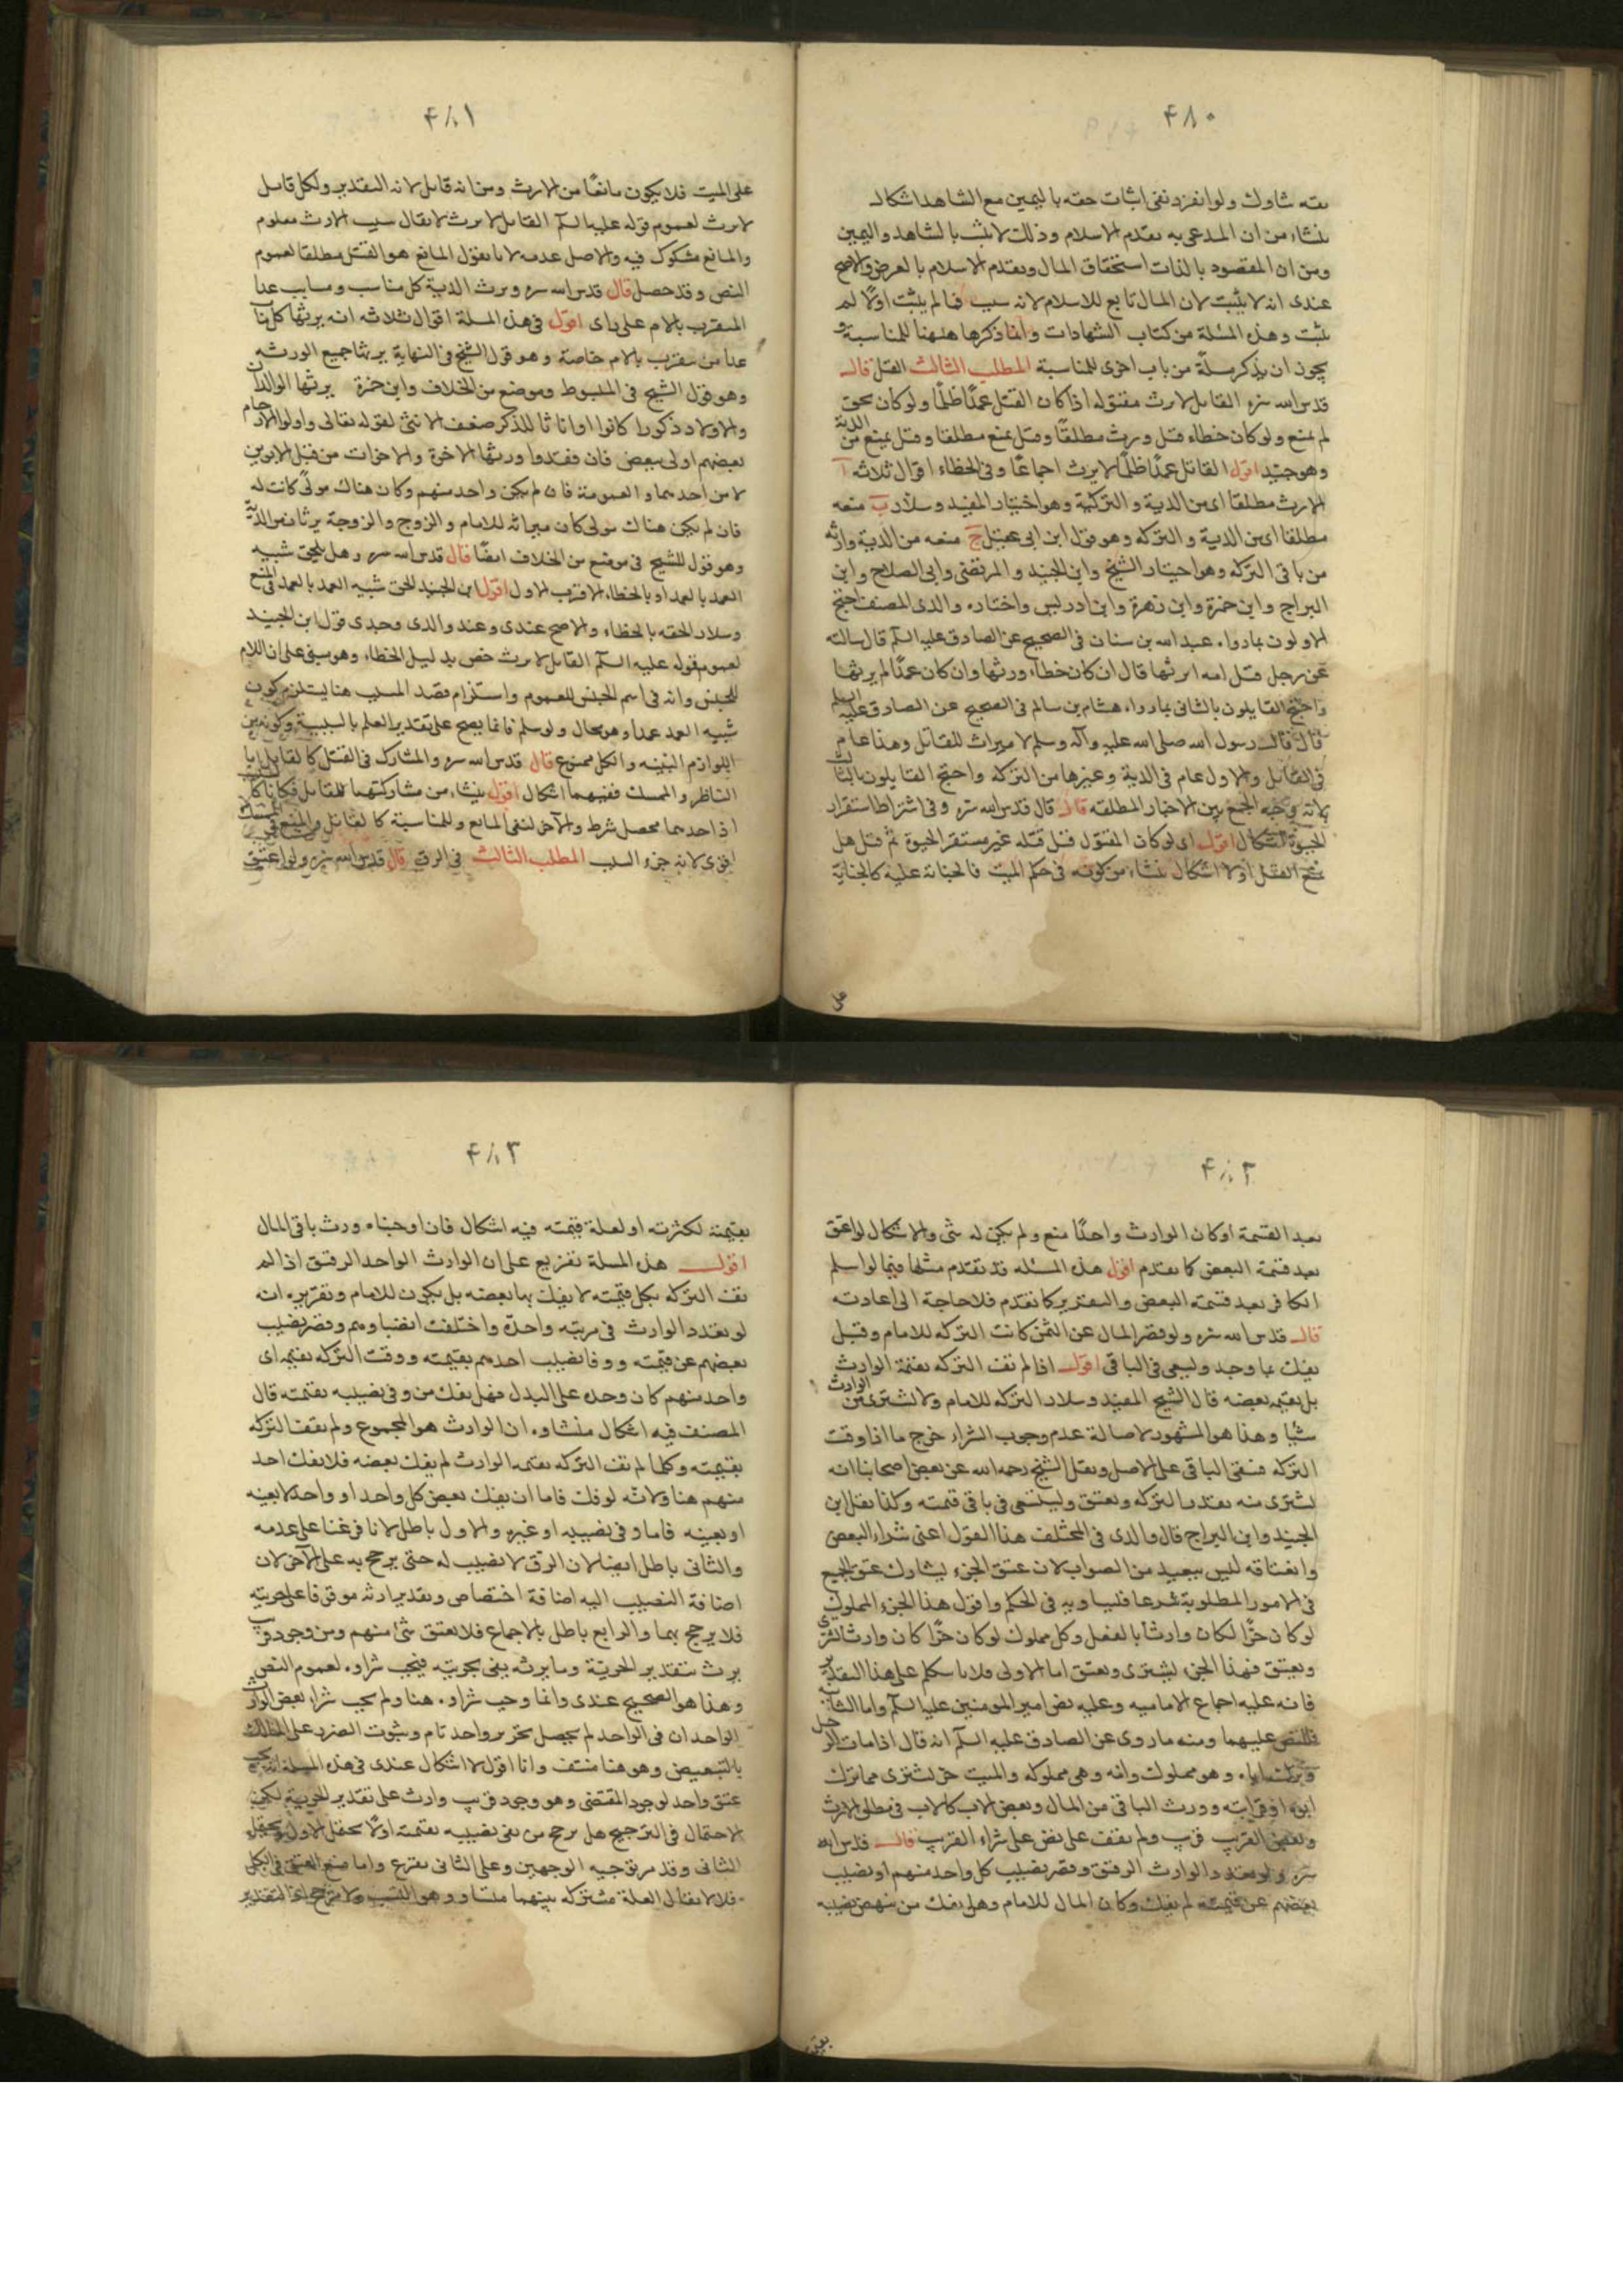 ۴۸۰
بقه شاوك ولو انفرد نفى اثبات حقه باليمين مع الشاهد اشكال
ينشاء من ان المدعى به تقدم الاسلام وذلك لا يثبت بالشاهد واليمين
ومن ان المقصود بالذات استحقاق المال وتقدم الاسلام بالعرض والاصح
عندى انه لا يثبت لان المال تابع للاسلام لانه سبب فما لم يثبت اولًا لم
يثبت وهذه المسئلة من كتاب الشهادات وانما ذكرها ههنا للمناسبة و
يجوز ان يذكر مسلة من باب اخرى للمناسبة المطلب الثالث القتل قال
قدس الله سره القاتل لا يرث مقتوله اذا كان القتل عمدًا ظلمًا ولو كان بحق
لم يمنع ولو كان خطاء قيل ورث مطلقًا وقيل يمنع مطلقا وقيل يمنع من الدية
وهو جيد اقول القاتل عمدًا ظلمًا لا يرث اجماعًا وفى الخطاء اقوال ثلاثه آ
الارث مطلقا اى من الدية والتركة وهو اختيار المفيد وسلار ب منعه
مطلقا اى من الدية والتركه وهو قول ابن ابى عقيل ج منعه من الدية وارثه
من باقى التركه وهو اختيار الشيخ وابن الجنيد والمرتضى وابى الصلاح وابن
البراج وابن حمزة وابن زهرة وابن ادريس واختاره والدى المصنف احتج
الاولون بما رواه عبد الله بن سنان فى الصحيح عن الصادق عليه السلم قال سالته
عن رجل قتل امه ايرثها قال ان كان خطاء ورثها وان كان عمدًا لم يرثها
واحتج القايلون بالثانى بما رواه هشام بن سالم فى الصحيح عن الصادق عليه السلم
قال قال رسول الله صلى الله عليه وآله وسلم لا ميراث للقاتل وهذا عام
فى القاتل والاول عام فى الدية وغيرها من التركه واحتج القايلون بالثالث
بانه وجه الجمع بين الاخبار المطلقه قال قال قدس الله سره وفى اشتراط استقرار
الحيوة اشكال اقول اى لو كان المقتول قبل قتله غير مستقر الحيوة ثم قتل هل
يمنع القتل اولا اشكال ينشاء من كونه فى حكم الميت فالجناية عليه كالجناية
على
۴۸۱
على الميت فلا يكون مانعًا من الارث ومن انه قاتل لانه التقدير ولكل قاتل
لا يرث لعموم قوله عليه السلم القاتل لا يرث لا يقال سبب الارث معلوم
والمانع مشكوك فيه والاصل عدمه لانا نقول المانع هو القتل مطلقا لعموم
النص وقد حصل قال قدس الله سره ويرث الدية كل مناسب ومسابب عدا
المتقرب بالام على راى اقول فى هذه المسلة اقوال ثلاثه انه يرثها كل
عدا من يتقرب بالام خاصة وهو قول الشيخ فى النهاية يرثها جميع الورثه
وهو قول الشيخ فى المبسوط وموضع من الخلاف وابن حمزة يرثها الوالدان
والاولاد ذكورا كانوا او اناثا للذكر ضعف الانثى لقوله تعالى واولوا الارحام
بعضهم اولى ببعض فان فقدوا ورثها الاخوة والاخوات من قبل الابوين
لا من احدهما والعمومة فان لم يكن واحد منهم وكان هناك مولى كانت له
فان لم يكن هناك مولى كان ميراثه للامام والزوج والزوجة يرثان من الدية
وهو قول للشيخ فى موضع من الخلاف ايضًا قال قدس الله سره وهل يلحق شبيه
العمد بالعمد او بالخطاء الاقرب الاول اقول ابن الجنيد الحق شبيه العمد بالعمد فى المنع
وسلار الحقه بالخطاء والاصح عندى وعند والدى وجدى قول ابن الجنيد
لعموم قوله عليه السلم القاتل لا يرث خص بدليل الخطاء وهو مبنى على ان اللام
للجنس وانه فى اسم الجنس للعموم واستلزام قصد المسبب هنا يستلزم كون
شبيه العمد عمدا وهو محال ولو سلم فانما يصح على تقدير العلم بالسببية وكونه من
اللوازم البينه والكل ممنوع قال قدس الله سره والمشارك فى القتل كالقاتل اما
الناظر والممسك ففيهما اشكال اقول ينشاء من مشاركتهما للقاتل فكانا كل
اذ احدهما محصل شرط والآخر لنفى المانع وللمناسبة كالقاتل والمنع فى الممسك
اقوى لانه جزء السبب المطلب الثالث فى الرق قال قدس الله سره ولو اعتق
۴۸۲
بعد القسمة او كان الوارث واحدًا منع ولم يكن له شى والاشكال لو اعتق
بعد قسمة البعض كما تقدم اقول هذه المسئله قد تقدم مثلها فيما لو اسلم
الكافر بعد قسمة البعض والتقرير كما تقدم فلا حاجة الى اعادته
قال قدس الله سره ولو قصر المال عن الثمن كانت التركه للامام وقيل
يفك بما وجد ويسعى فى الباقى اقول اذا لم تف التركه بقيمة الوارث
بل بقيمة بعضه قال الشيخ المفيد وسلار التركه للامام ولا يشترى من الوارث
شيا وهذا هو المشهور لاصالة عدم وجوب الشراء خرج ما اذا وفت
التركه فبقى الباقى على الاصل ونقل الشيخ رحمه الله عن بعض اصحابنا انه
يشترى منه بقدر التركه ويعتق ويستسعى فى باقى قيمته وكذا نقل ابن
الجنيد وابن البراج قال والدى فى المختلف هذا القول اعنى شراء البعض
واعتاقه ليس ببعيد من الصواب لان عتق الجزء يشارك عتق الجميع
فى الامور المطلوبة شرعا فيساويه فى الحكم واقول هذا الجزء المملوك
لو كان حرًا لكان وارثا بالفعل وكل مملوك لو كان حرًا كان وارثا اشترى
ويعتق فهذا الجزء يشترى ويعتق اما الاولى فلانا نتكلم على هذا التقدير
فانه عليه اجماع الاماميه وعليه نص امير المومنين عليه السلم واما الثانية
فللنص عليهما ومنه ما روى عن الصادق عليه السلم انه قال اذا مات الرجل
وترك اباه وهو مملوك وامه وهى مملوكه والميت حر يشترى مما ترك
ابوه او قرابته وورث الباقى من المال وبعض الاب كالاب فى مطلق الارث
وبعض القريب قريب ولم نقف على نص على شراء القريب قال قدس الله
سره ولو تعدد الوارث الرقيق وقصر نصيب كل واحد منهم او نصيب
بعضهم عن قيمته لم يفك وكان المال للامام وهل يفك من ينهض نصيبه
بقيمته
۴۸۳
بقيمته لكثرته او لعلة قيمته فيه اشكال فان اوجبناه ورث باقى المال
اقول هذه المسلة تفريع على ان الوارث الواحد الرقيق اذا لم
تف التركه بكل قيمته لا يفك بها بعضه بل يكون للامام وتقريره انه
لو تعدد الوارث فى مرتبه واحدة واختلفت انصباوهم وقصر نصيب
بعضهم عن قيمته ووفا نصيب احدهم بقيمته ووفت التركه بقيمة اى
واحد منهم كان وحده على البدل فهل يفك من وفى نصيبه بقيمته قال
المصنف فيه اشكال منشاوه ان الوارث هو المجموع ولم تف التركه
بقيمته وكلما لم تف التركه بقيمة الوارث لم يفك بعضه فلا يفك احد
منهم هنا ولانه لو فك فاما ان يفك بعض كل واحد او واحد لا بعينه
او بعينه فاما وفى نصيبه او غيره والاول باطل لانا فرغنا على عدمه
والثانى باطل ايضا لان الرق لا نصيب له حتى يرجح به على الآخر لان
اضافة النصيب اليه اضافة اختصاص وتقدير ارثه موقوفا على حريته
فلا يرجح بها والرابع باطل بالاجماع فلا يعتق شى منهم ومن وجود قريب
يرث بتقدير الحرية وما يرثه يفى بحريته فيجب شراوه لعموم النص
وهذا هو الصحيح عندى وانما وجب شراوه هنا ولم يجب شراء بعض الوارث
الواحد ان فى الواحد لم يحصل تحرير واحد تام وثبوت الضرر على المالك
بالتبعيض وهو هنا منتف وانا اقول لا اشكال عندى فى هذه المسلة انه يجب
عتق واحد لوجود المقتضى وهو وجود قريب وارث على تقدير الحرية لكن
الاحتمال فى الترجيح هل يرجح من يفى نصيبه بقيمته اولًا يحتمل الاول ويحتمل
الثانى وقد مر توجيه الوجهين وعلى الثانى يقرع واما منع العتق فى الكل
فلا لا يقال العلة مشتركه بينهما متساو وهو النسب ولا ترجيح التقدير